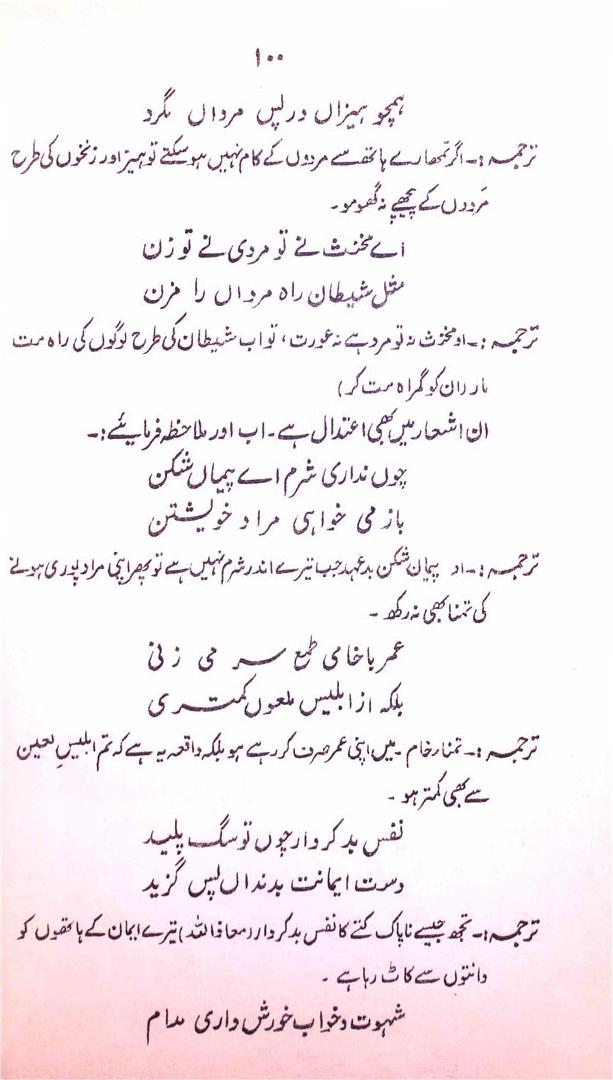 ۱۰۰
ہمچو ہیزاں در پس مرداں مگرد
ترجمہ :۔ اگر تمھارے ہاتھ سے مردوں کے کام نہیں ہو سکتے تو ہیز اور زنخوں کی طرح
مَردوں کے پیچھے نہ گھومو۔
اے مخنث نے تو مردی نے تو زن
مثل شیطان راہ مرداں را مزن
ترجمہ :۔ او مخنث نہ تو مرد ہے نہ عورت، تو اب شیطان کی طرح لوگوں کی راہ مت
مار (ان کو گمراہ مت کر)
ان اشعار میں بھی اعتدال ہے۔ اب اور ملاحظہ فرمائیے :۔
چوں نداری شرم اے پیماں شکن
باز می خواہی مراد خویشتن
ترجمہ :۔ او پیمان شکن بد عہد جب تیرے اندر شرم نہیں ہے تو پھر اپنی مراد پوری ہونے
کی تمنا بھی نہ رکھ۔
عمر با خامی طمع سر می زنی
بلکہ از ابلیس ملعوں کمتری
ترجمہ :۔ تمنار خام ۔میں اپنی عمر صرف کر رہے ہو بلکہ واقعہ یہ ہے کہ تم ابلیسِ لعین
سے بھی کمتر ہو۔
نفس بد کردار چوں تو سگ پلید
دست ایمانت بدنداں پس گزید
ترجمہ :۔ تجھ جیسے ناپاک کتے کا نفس بد کردار (معاذ اللہ) تیرے ایمان کے ہاتھوں کو
دانتوں سے کاٹ رہا ہے۔
شہوت و خواب خورش داری مدام